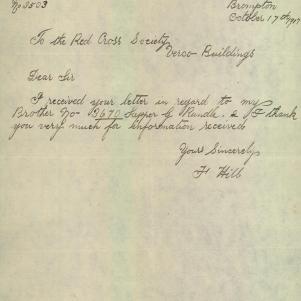 No 3503
Brompton
October 17th 1917
To the Red Cross Society
Verco Buildings
Dear Sir
I received your letter in regard to my
Brother No- 3670 Sapper G Rundle, & I thank
you very much for information received
Yours Sincerely
F Hill